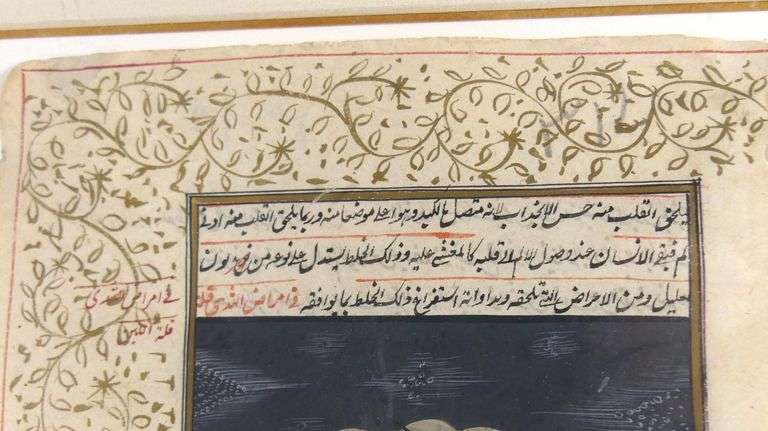 يلحق القلب منه حس الانجذاب لانه متصل بالكبد وهوا على موضعا منه وربما يلحق القلب منه اذى
الم فيبقى الانسان عند وصول الالم الى قلبه كالمغشى عليه وذلك الخلط يستدل على نوعه من لون
تحليل ومن الاعراض التى تلحقه ومداواته استفراغ ذلك الخلط بما يوافقه فى امراض الثدى قلة
فى امراض الثدى
قلة اللبن